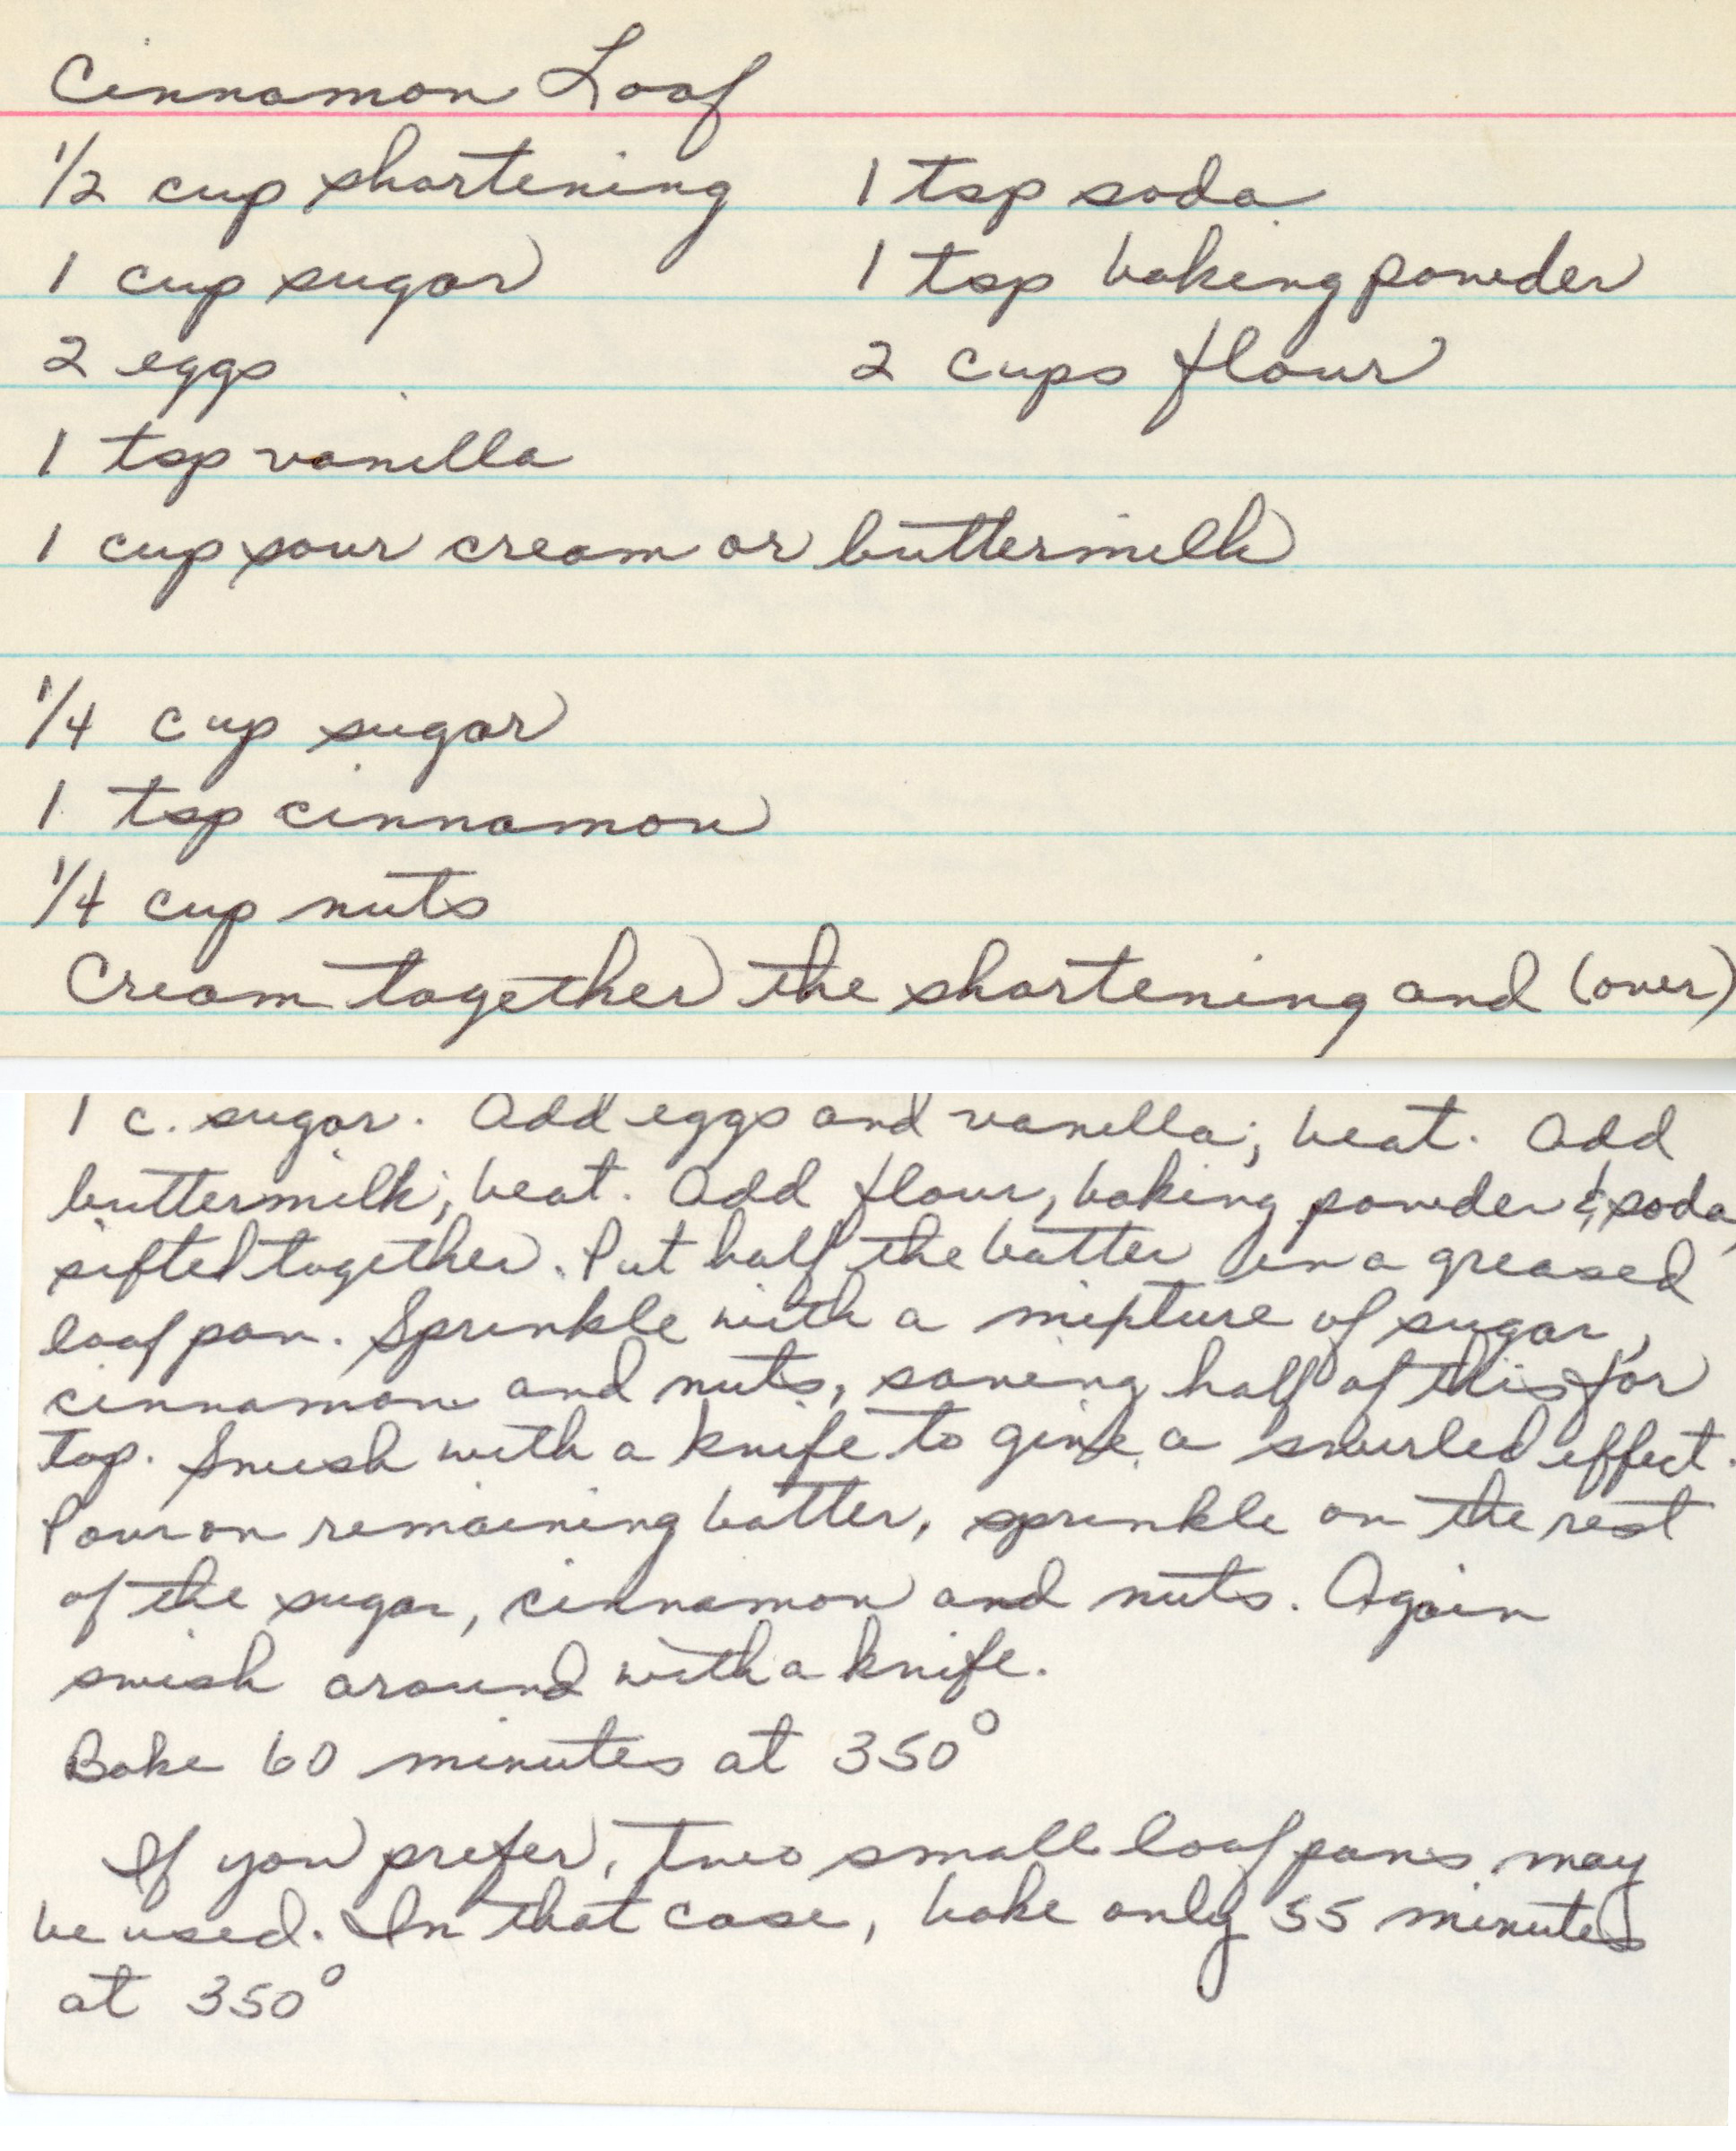 Cinnamon Loaf
1/2 cup shortening 1 tsp soda
1 cup sugar 1 tsp baking powder
2 eggs 2 cups flour
1 tsp vanilla
1 cup sour cream or buttermilk
1/4 cup sugar
1 tsp cinnamon
1/4 cup nuts
Cream together the shortening and (over)
1 c. sugar. Add eggs and vanilla; beat. Add
buttermilk; beat. Add flour, baking powder & soda,
sifted together. Put half the batter in a greased
loaf pan. Sprinkle with a mixture of sugar,
cinnamon and nuts, saving half of this for
top. Swish with a knife to give a swirled effect.
Pour on remaining batter, sprinkle on the rest
of the sugar, cinnamon and nuts. Again
swish around with a knife.
Bake 60 minutes at 350°
If you prefer, two small loaf pans may
be used. In that case, bake only 35 minutes
at 350°